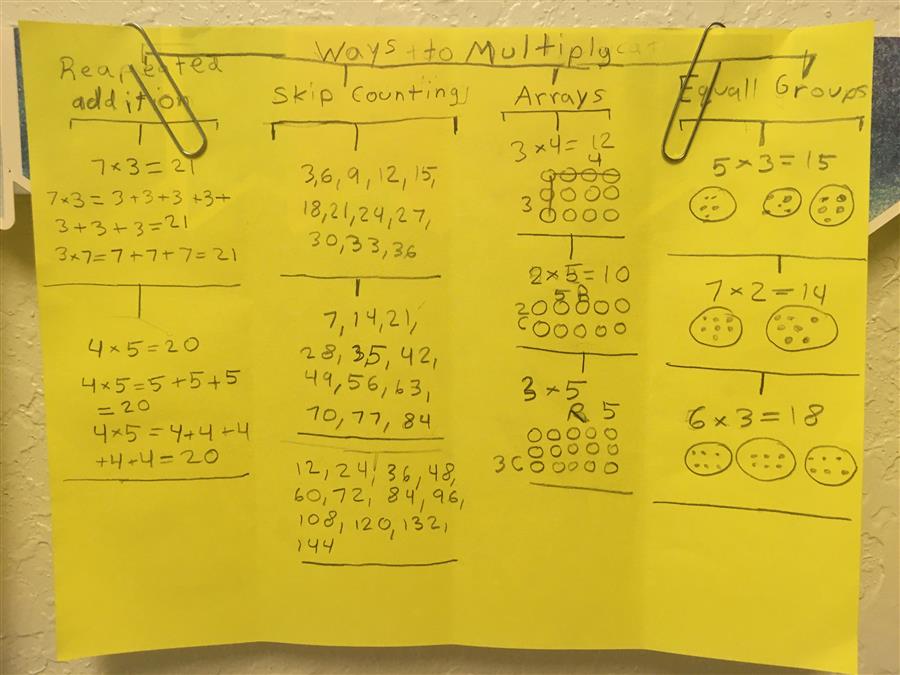 Ways to Multiply
Reapeated
addition
7×3=21
7×3=3+3+3+3+
3+3+3=21
3×7=7+7+7=21
4×5=20
4×5=5+5+5
=20
4×5=4+4+4
+4+4=20
Skip Counting
3,6,9,12,15,
18,21,24,27,
30,33,36
7,14,21,
28,35,42,
49,56,63,
70,77,84
12,24,36,48,
60,72,84,96,
108,120,132,
144
Arrays
3×4=12
4
3
2×5=10
5R
2
C
3×5
R 5
3C
Equall Groups
5×3=15
7×2=14
6×3=18